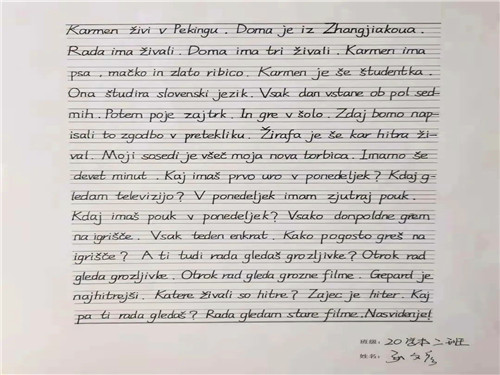 Karmen živi v Pekingu. Doma je iz Zhangjiakoua.
Rada ima živali. Doma ima tri živali. Karmen ima
psa, mačko in zlato ribico. Karmen je še študentka.
Ona študira slovenski jezik. Vsak dan vstane ob pol sed-
mih. Potem poje zajtrk. In gre v šolo. Zdaj bomo nap-
isali to zgodbo v pretekliku. Žirafa je še kar hitra ži-
val. Moji sosedi je všeč moja nova torbica. Imamo še
devet minut. Kaj imaš prvo uro v ponedeljek? Kdaj g-
ledam televizijo? V ponedeljek imam zjutraj pouk.
Kdaj imaš pouk v ponedeljek? Vsako donpoldne grem
na igrišče. Vsak teden enkrat. Kako pogosto greš na
igrišče? A ti tudi rada gledaš grozljivke? Otrok rad
gleda grozljivke. Otrok rad gleda grozne filme. Gepard je
najhitrejši. Katere živali so hitre? Zajec je hiter. Kaj
pa ti rada gledaš? Rada gledam stare filme. Nasvidenje!
班级: 20 本二班
姓名: